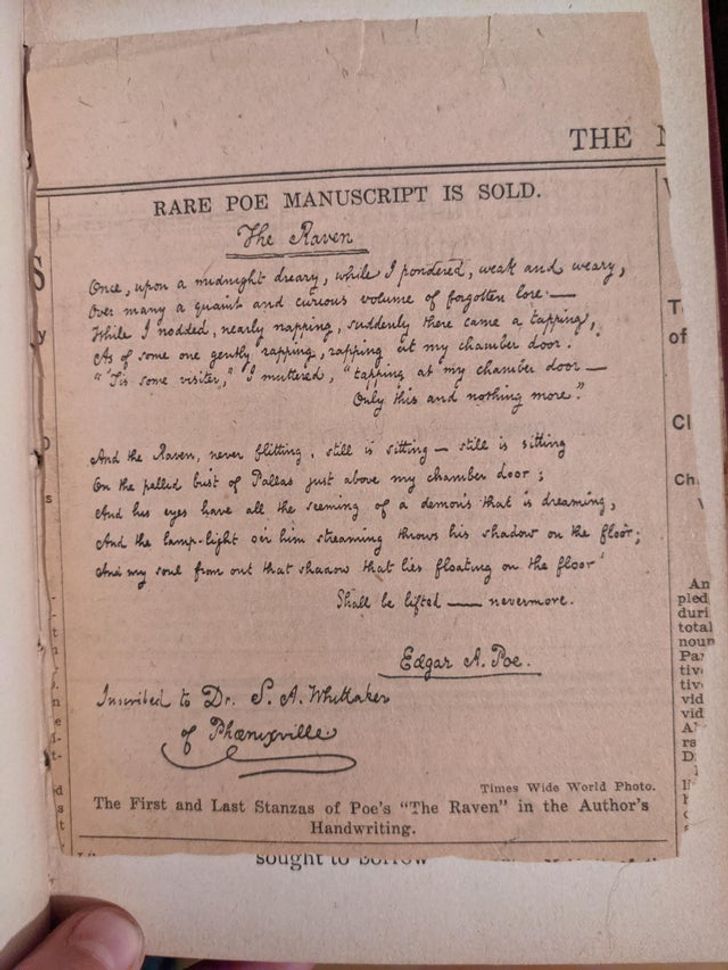 THE
RARE POE MANUSCRIPT IS SOLD.
The Raven
Once, upon a midnight dreary, while I pondered, weak and weary,
Over many a quaint and curious volume of forgotten lore —
While I nodded, nearly napping, suddenly there came a tapping,
As of some one gently rapping, rapping at my chamber door.
"'Tis some visiter," I muttered, "tapping at my chamber door —
Only this and nothing more."
And the Raven, never flitting, still is sitting — still is sitting
On the pallid bust of Pallas just above my chamber door;
And his eyes have all the seeming of a demon's that is dreaming,
And the lamp-light o'er him streaming throws his shadow on the floor;
And my soul from out that shadow that lies floating on the floor
Shall be lifted — nevermore.
Edgar A. Poe.
Inscribed to Dr. S. A. Whittaker
of Phœnixville
Times Wide World Photo.
The First and Last Stanzas of Poe's "The Raven" in the Author's
Handwriting.
sought to borrow
T
of
Cl
Ch
An
pled
duri
total
noun
Pa
tiv
tiv
vid
vid
A
rs
D